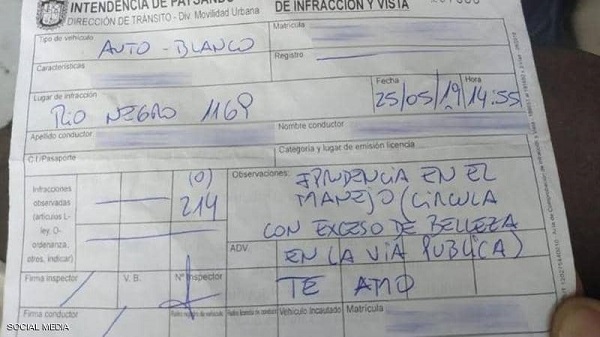 INTENDENCIA DE PAYSANDÚ
DE INFRACCIÓN Y VISTA
DIRECCIÓN DE TRÁNSITO - Div. Movilidad Urbana
Tipo de vehículo
AUTO - BLANCO
Matrícula
Registro
Características
Lugar de infracción
RIO NEGRO 1169
Fecha
25/05/19
Hora
14:55
Apellido conductor
Nombre conductor
C.I/Pasaporte
Categoría y lugar de emisión licencia
Infracciones
observadas
(artículos L-
ley, O-
ordenanza,
otros, indicar)
(O)
214
Observaciones:
IPRUDENCIA EN EL
MANEJO (CIRCULA
CON EXCESO DE BELLEZA
EN LA VIA PUBLICA)
ADV.
TE AMO
Firma inspector
V. B.
Nº Inspector
Firma conductor
Vehículo Incautado
Matrícula
SOCIAL MEDIA